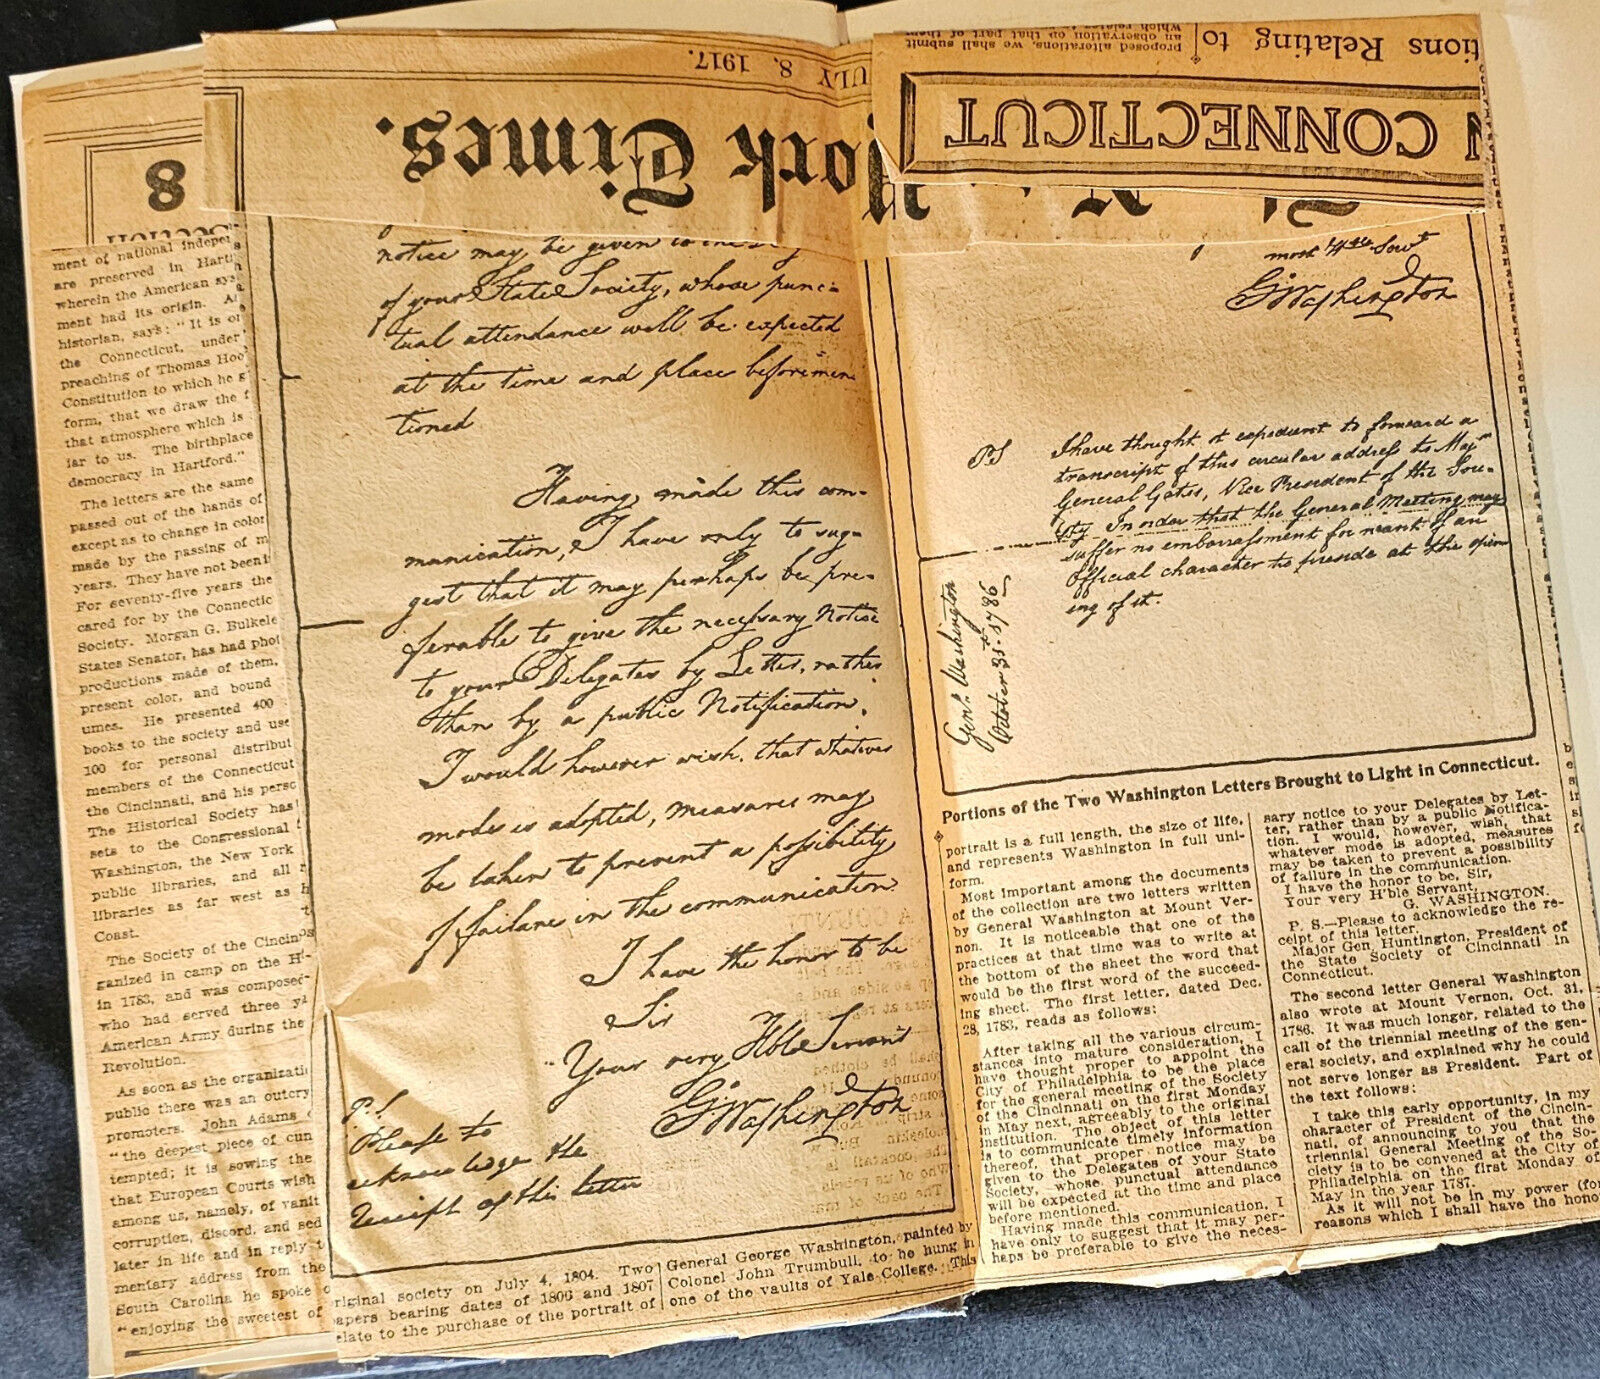 ULY 8, 1917.
York Times.
proposed alterations, we shall submit
an observation on that part of them
tions Relating to
CONNECTICUT
8
Section
ment of national indepe
are preserved in Hart
wherein the American sys
ment had its origin. A
historian, says: "It is
the Connecticut, under
preaching of Thomas Hoo
Constitution to which he
form, that we draw the
that atmosphere which is
iar to us. The birthplace
democracy in Hartford."
The letters are the same
passed out of the hands of
except as to change in color
made by the passing of
years. They have not been
For seventy-five years the
cared for by the Connectic
Society. Morgan G. Bulkele
States Senator, has had phot
productions made of them,
present color, and bound
umes. He presented 400
books to the society and use
100 for personal distribut
members of the Connecticut
the Cincinnati, and his perso
The Historical Society has
sets to the Congressional
Washington, the New York
public libraries, and all
libraries as far west as
Coast.
The Society of the Cincin
ganized in camp on the H
in 1783, and was composed
who had served three
American Army during the
Revolution.
As soon as the organizati
public there was an outcry
promoters. John Adams
"the deepest piece of cun
tempted; it is sowing the
that European Courts wish
among us, namely, of vanit
corruption, discord, and sed
later in life and in reply
mentary address from the
South Carolina he spoke
"enjoying the sweetest of
notice may be given to the
of your State Society, whose punc-
tual attendance will be expected
at the time and place beforemen
tioned
Having made this com-
munication, I have only to sug-
gest that it may perhaps be pre-
ferable to give the necessary Notice
to your Delegates by Letter, rather
than by a public Notification.
I would however wish, that whatever
mode is adopted, measures may
be taken to prevent a possibility
of failure in the communication
I have the honor to be
Sir
Your very Hble Servant
G Washington
P.S.
Please to
acknowledge the
Receipt of this letter
original society on July 4, 1804. Two
papers bearing dates of 1806 and 1807
relate to the purchase of the portrait of
General George Washington, painted by
Colonel John Trumbull, to be hung in
one of the vaults of Yale College. This
most Hble Servt
G Washington
PS I have thought it expedient to forward a
transcript of this circular address to Majr
General Gates, Vice President of the Soci-
ety In order that the General Meeting may
suffer no embarrassment for want of an
Official character to preside at the open
ing of it.
Genl. Washington
October 31st. 1786
Portions of the Two Washington Letters Brought to Light in Connecticut.
portrait is a full length, the size of life,
and represents Washington in full uni-
form.
Most important among the documents
of the collection are two letters written
by General Washington at Mount Ver-
non. It is noticeable that one of the
practices at that time was to write at
the bottom of the sheet the word that
would be the first word of the succeed-
ing sheet. The first letter, dated Dec.
28, 1783, reads as follows:
After taking all the various circum-
stances into mature consideration, I
have thought proper to appoint the
City of Philadelphia to be the place
for the general meeting of the Society
of the Cincinnati on the first Monday
in May next, agreeably to the original
institution. The object of this letter
is to communicate timely information
thereof, that proper notice may be
given to the Delegates of your State
Society, whose punctual attendance
will be expected at the time and place
before mentioned.
Having made this communication, I
have only to suggest that it may per-
haps be preferable to give the neces-
sary notice to your Delegates by Let-
ter, rather than by a public Notifica-
tion. I would, however, wish, that
whatever mode is adopted, measures
may be taken to prevent a possibility
of failure in the communication.
I have the honor to be, Sir,
Your very H'ble Servant,
G. WASHINGTON.
P. S.—Please to acknowledge the re-
ceipt of this letter.
Major Gen. Huntington, President of
the State Society of Cincinnati in
Connecticut.
The second letter General Washington
also wrote at Mount Vernon, Oct. 31,
1786. It was much longer, related to the
call of the triennial meeting of the gen-
eral society, and explained why he could
not serve longer as President. Part of
the text follows:
I take this early opportunity, in my
character of President of the Cincin-
nati, of announcing to you that the
triennial General Meeting of the So-
ciety is to be convened at the City of
Philadelphia on the first Monday of
May in the year 1787.
As it will not be in my power (for
reasons which I shall have the hono